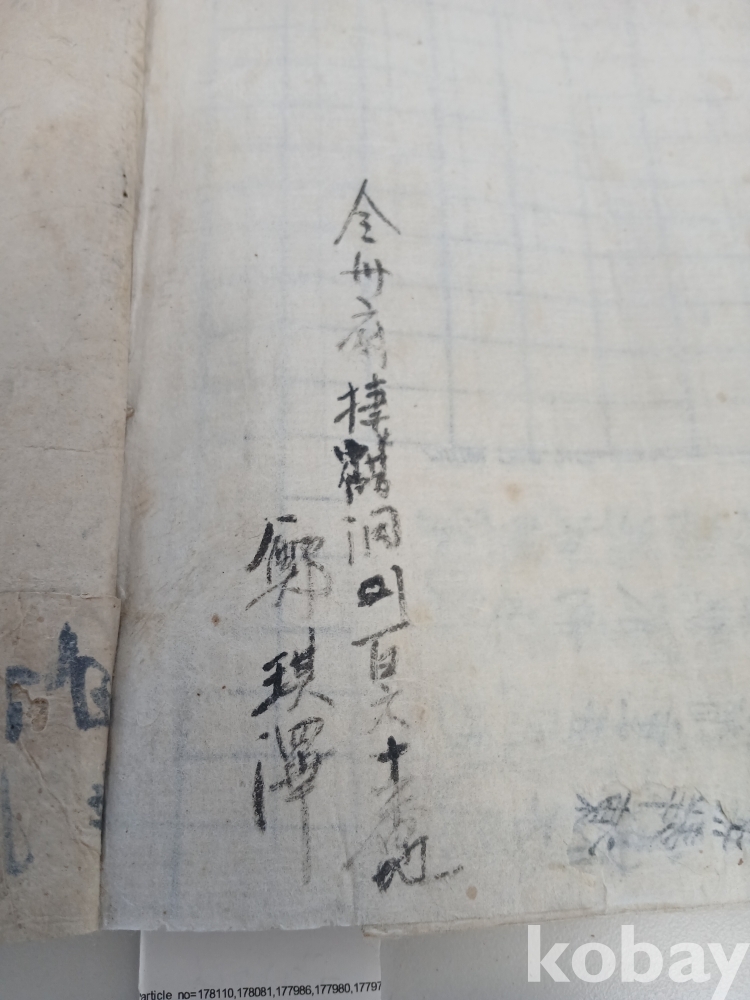 全州府捿鶴洞四百六十番地
鄭琪澤
article_no=178110,178081,177986,177980,17797
kobay